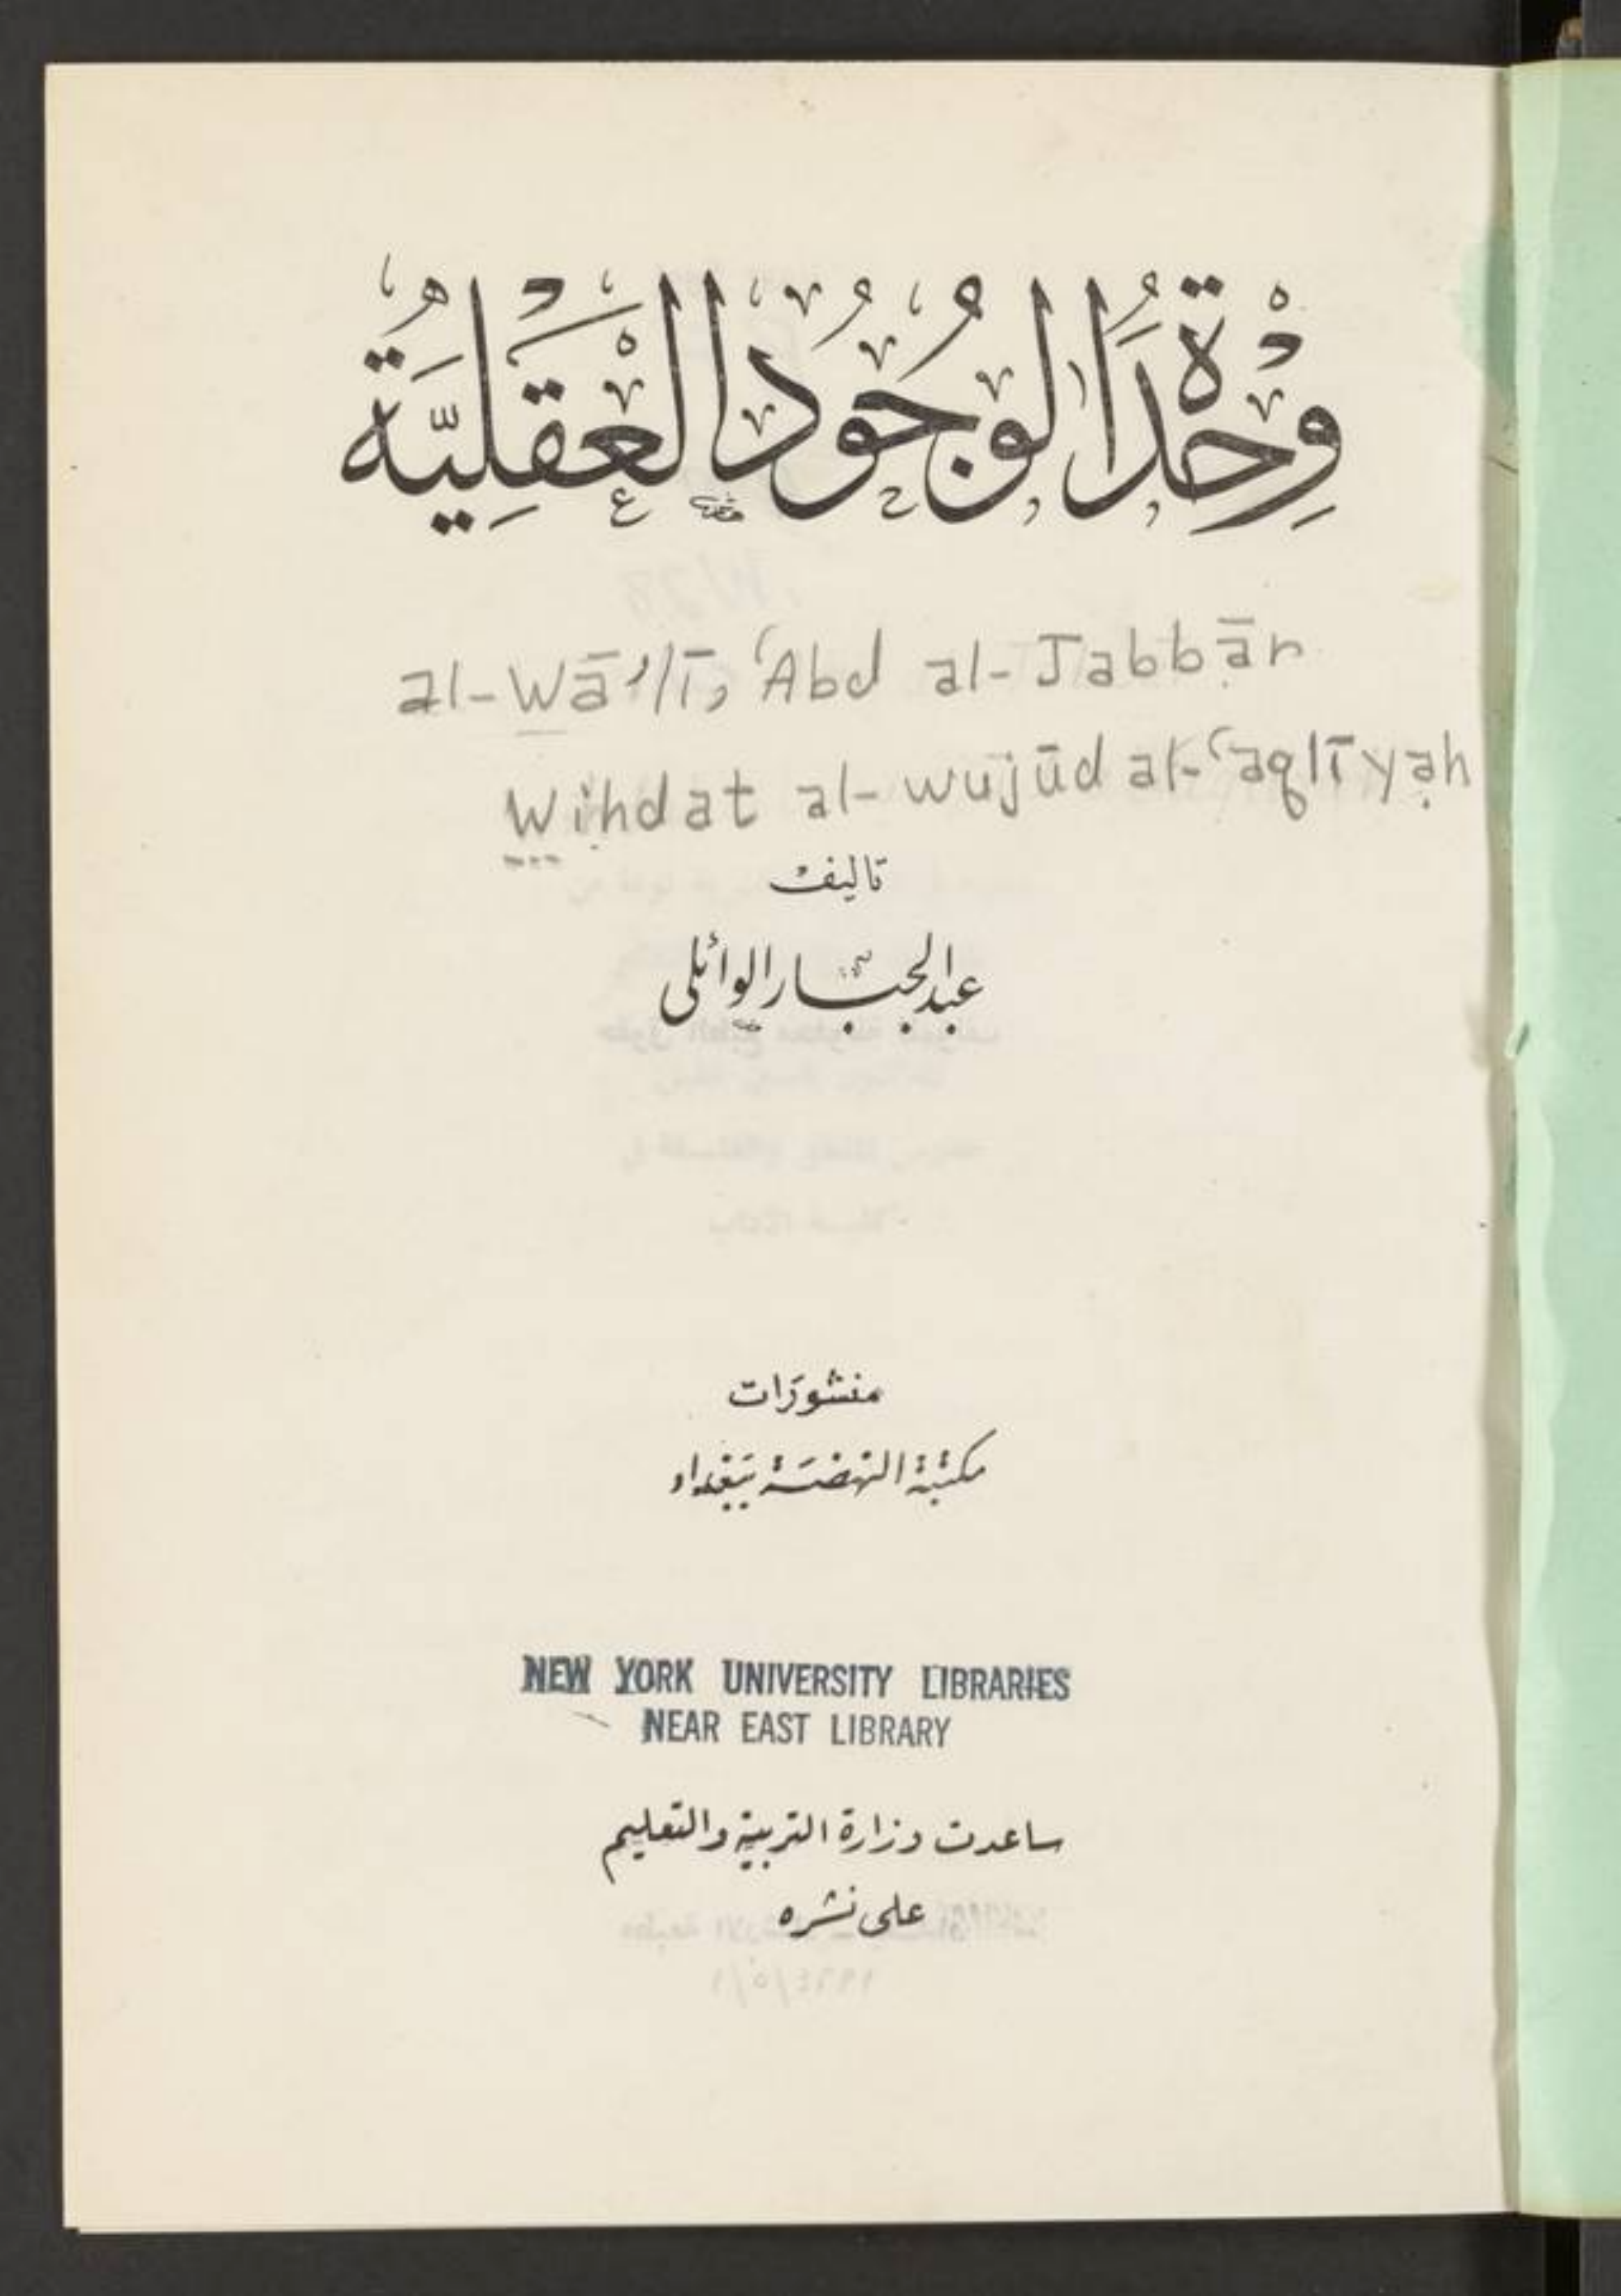 وِحْدَةُ الوُجُودِ العَقْلِيَّة
al-Wā'lī, ʿAbd al-Jabbār
Wiḥdat al-wujūd al-ʿaqlīyah
تاليف
عبدالجبار الوائلي
منشورَات
مكتبة النهضة ببغداد
NEW YORK UNIVERSITY LIBRARIES
NEAR EAST LIBRARY
ساعدت وزارة التربية والتعليم
على نشره